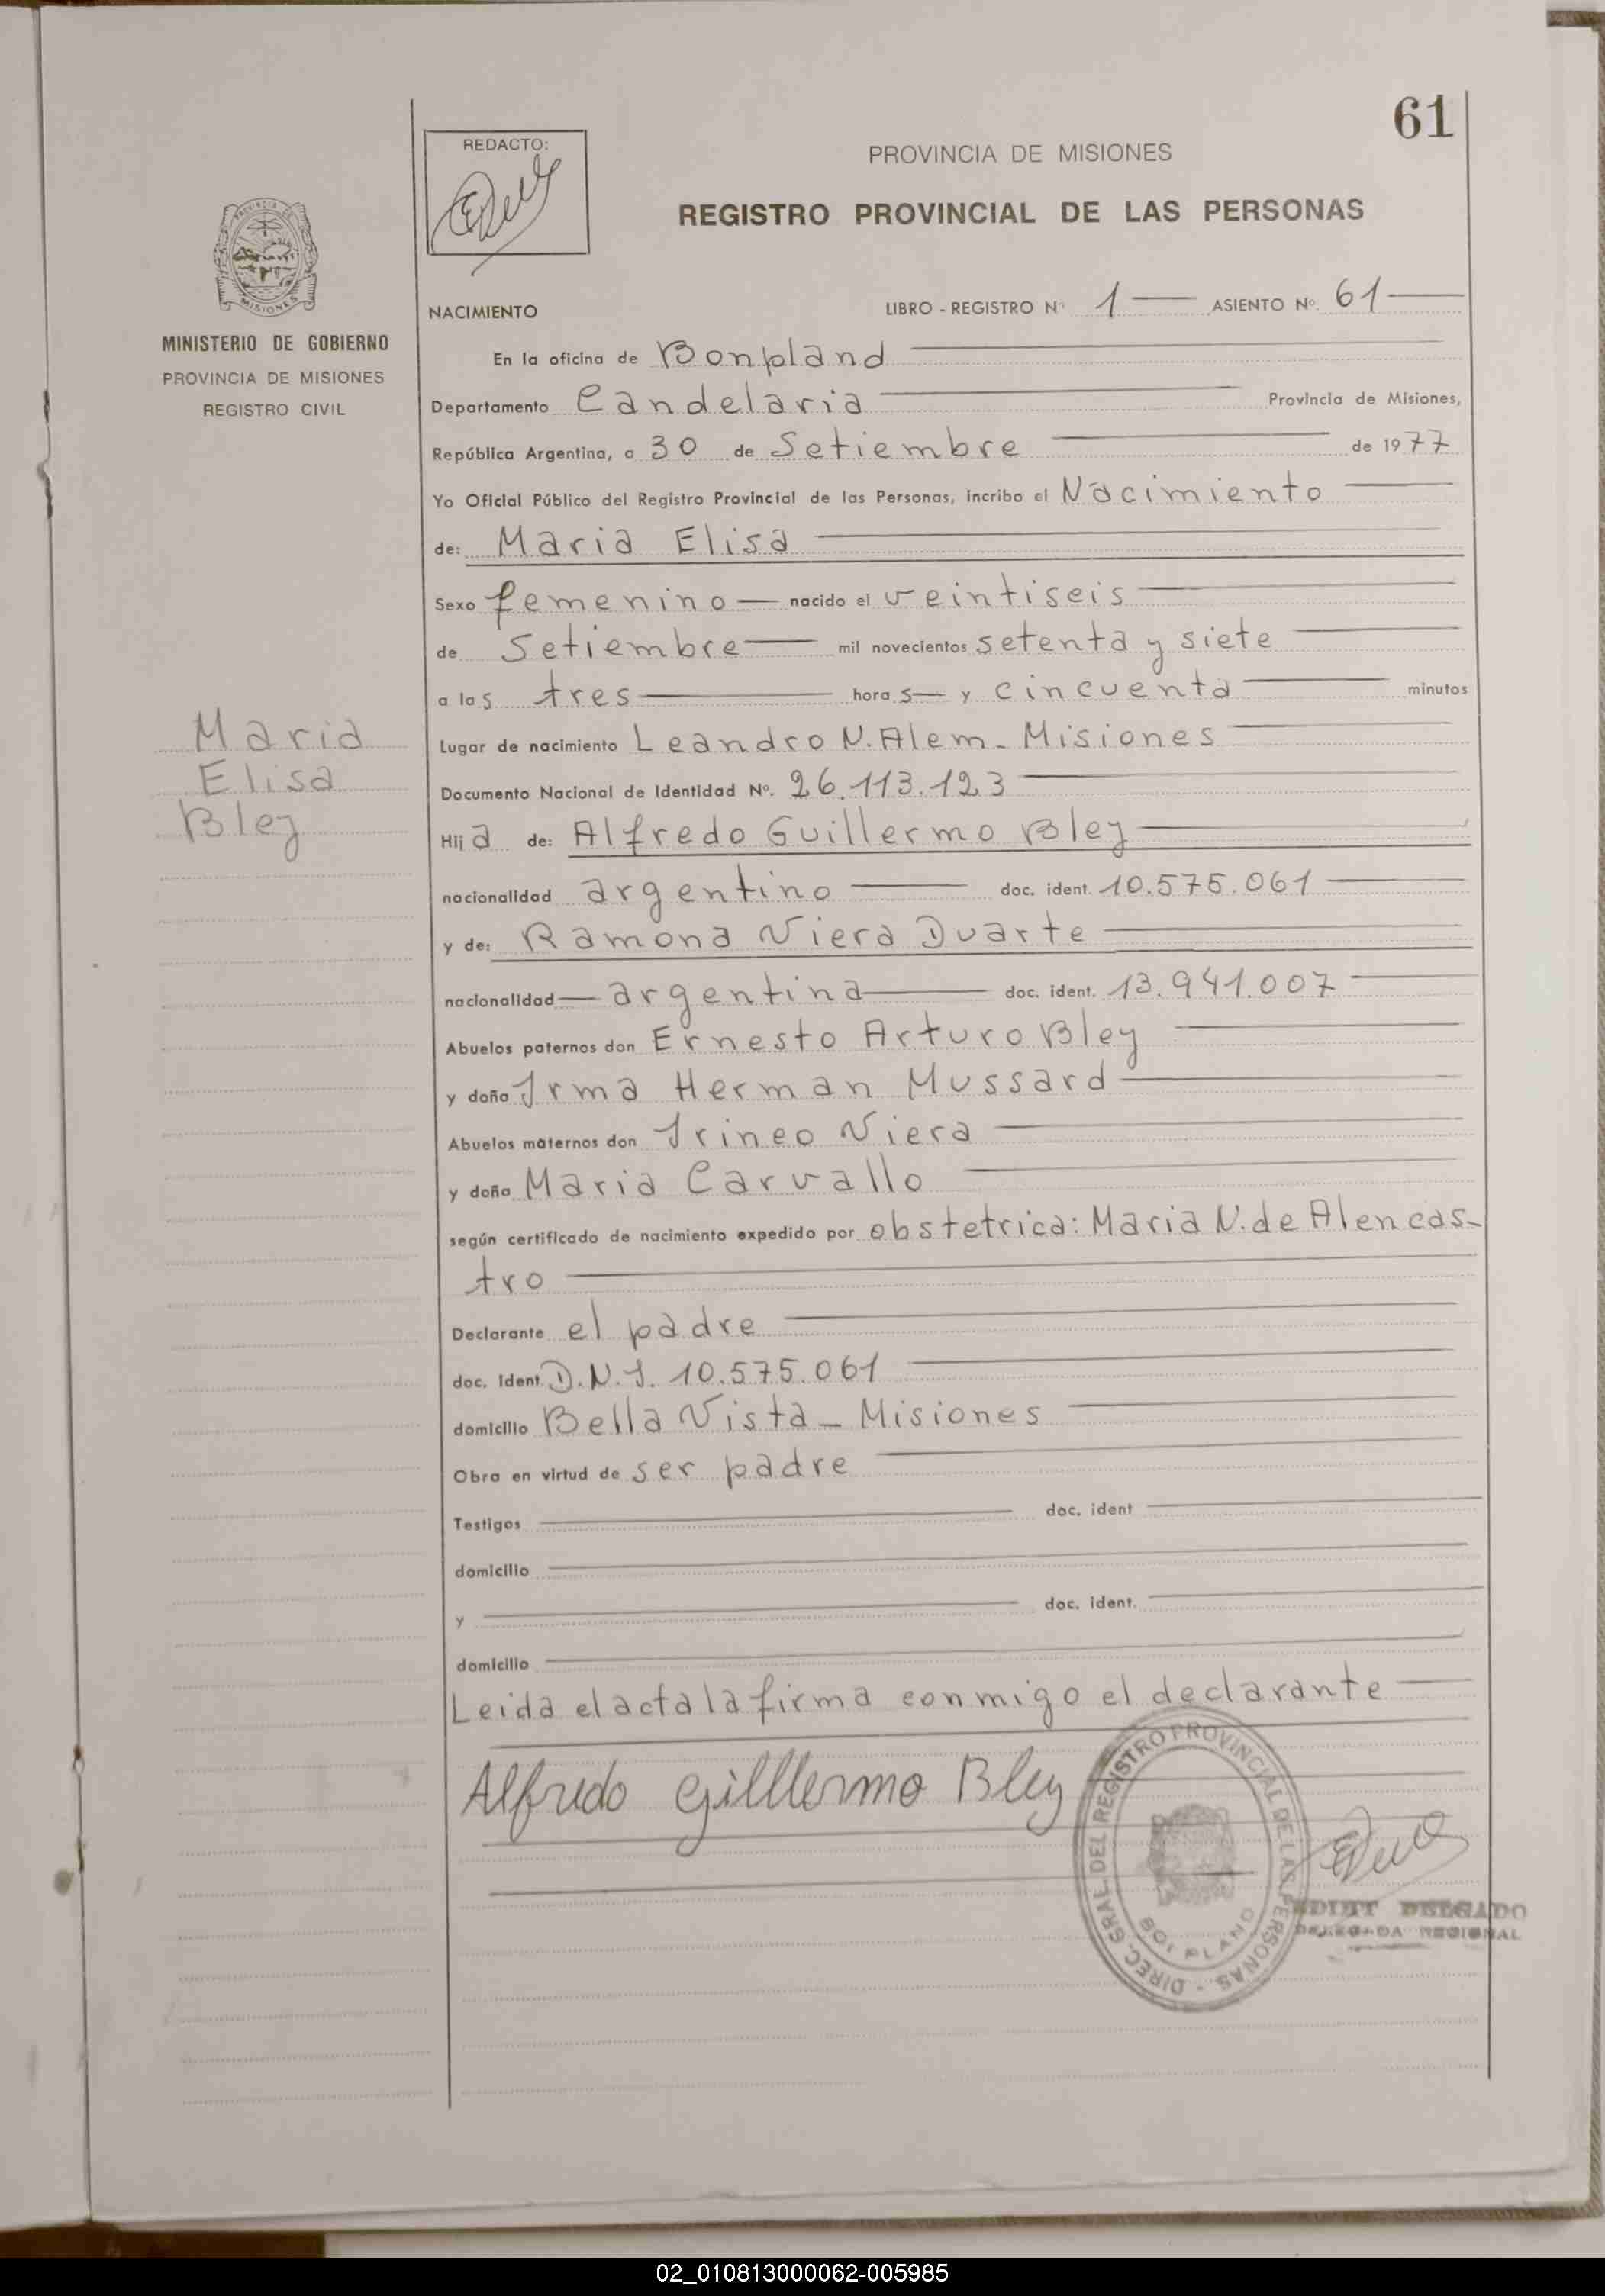 61
REDACTO:
PROVINCIA DE MISIONES
REGISTRO PROVINCIAL DE LAS PERSONAS
PROVINCIA DE
MISIONES
MINISTERIO DE GOBIERNO
PROVINCIA DE MISIONES
REGISTRO CIVIL
NACIMIENTO LIBRO - REGISTRO Nº 1 ASIENTO Nº. 61
En la oficina de Bonpland
Departamento Candelaria Provincia de Misiones,
República Argentina, a 30 de Setiembre de 1977
Yo Oficial Público del Registro Provincial de las Personas, incribo el Nacimiento
de: Maria Elisa
Sexo femenino nacido el veintiseis
de Setiembre mil novecientos setenta y siete
a las tres horas y cincuenta minutos
Lugar de nacimiento Leandro N. Alem - Misiones
Documento Nacional de Identidad Nº. 26.113.123
Hija de: Alfredo Guillermo Bley
nacionalidad argentino doc. ident. 10.575.061
y de: Ramona Viera Duarte
nacionalidad argentina doc. ident. 13.941.007
Abuelos paternos don Ernesto Arturo Bley
y doña Irma Herman Mussard
Abuelos maternos don Irineo Viera
y doña Maria Carvallo
según certificado de nacimiento expedido por obstetrica: Maria N. de Alencas-
tro
Declarante el padre
doc. Ident. D.N.I. 10.575.061
domicilio Bella Vista - Misiones
Obra en virtud de ser padre
Testigos doc. ident
domicilio
y doc. ident.
domicilio
Leida el acta la firma conmigo el declarante
Alfredo Gilllermo Bley
Maria
Elisa
Bley
DIREC. GRAL. DEL REGISTRO PROVINCIAL DE LAS PERSONAS -
EDIHT DELGADO
DELEGADA REGIONAL
02_010813000062-005985